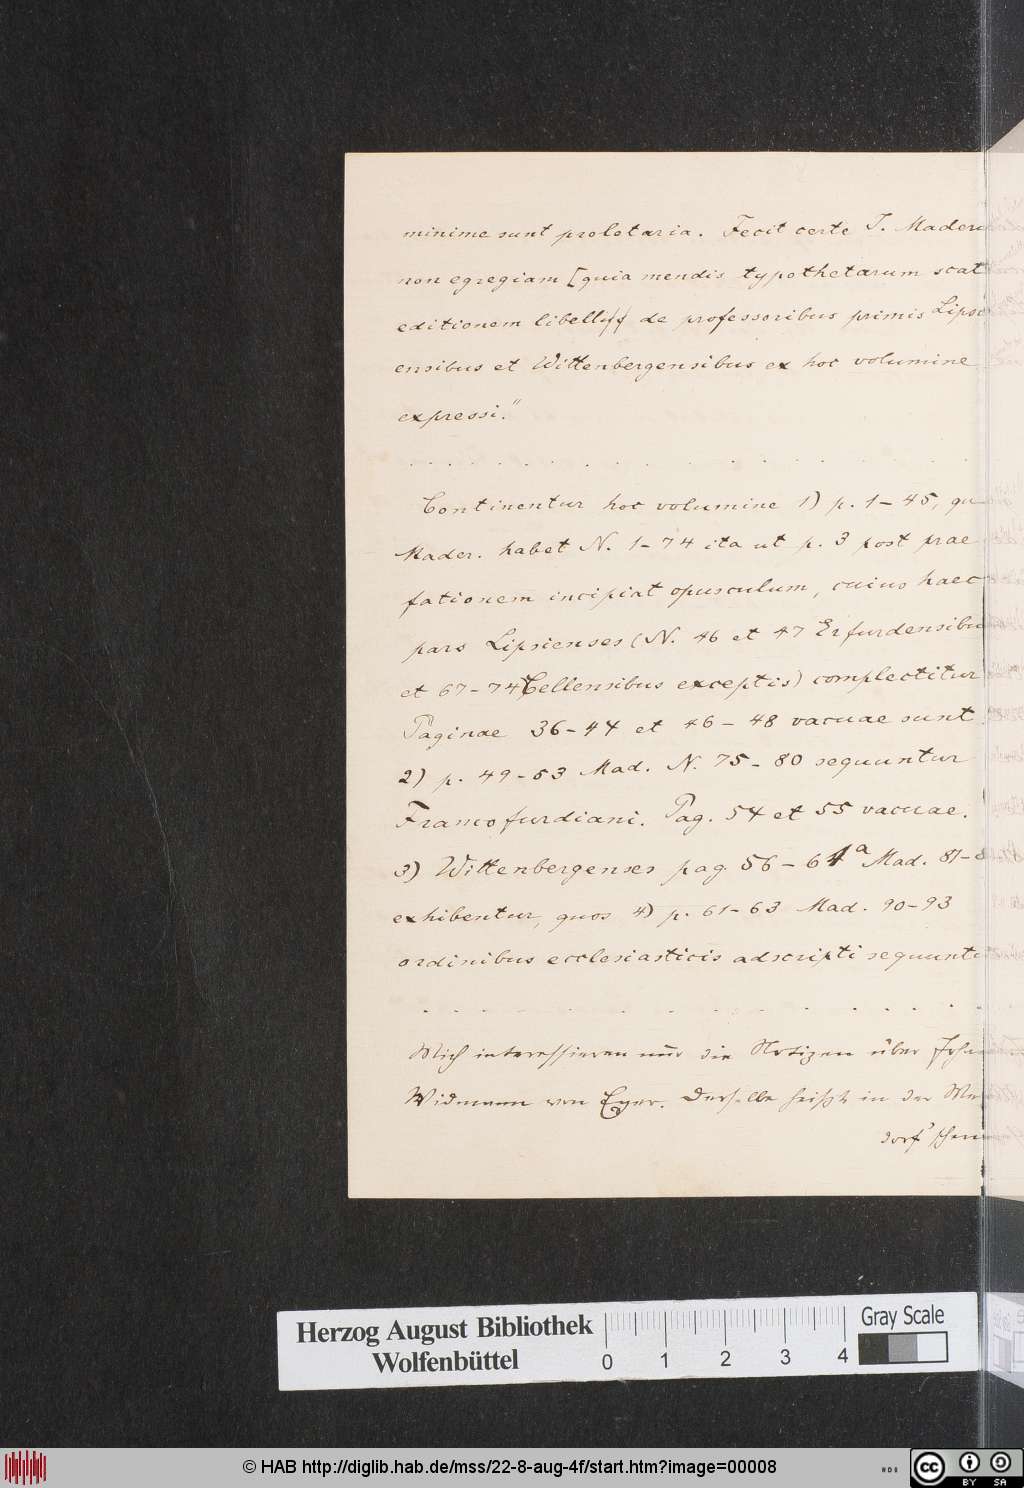 minime sunt proletaria. Fecit certe J. Maderu
non egregiam [quia mendis typothetarum scat
editionem libelli de professoribus primis Lipsi
ensibus et Wittenbergensibus ex hoc volumine
expressi."
. . . . . . . . . . . . . . . .
Continentur hoc volumine 1) p. 1–45, qu
Mader. habet N. 1–74 ita ut p. 3 post prae
fationem incipiat opusculum, cuius haec
pars Lipsienses (N. 46 et 47 Erfurdensibu
et 67–74 Cellensibus exceptis) complectitur
Paginae 36–44 et 46–48 vacuae sunt
2) p. 49–53 Mad. N. 75–80 sequuntur
Francofurdiani. Pag. 54 et 55 vacuae.
3) Wittenbergenses pag. 56–61a Mad. 81–8
exhibentur, quos 4) p. 61–63 Mad. 90–93
ordinibus ecclesiasticis adscripti sequuntu
. . . . . . . . . . . . .
Mich interessieren nur die Notizen über Joha
Widmann von Eger. Derselbe heißt in der
dorf'schen
Herzog August Bibliothek
Wolfenbüttel
0 1 2 3 4
Gray Scale
© HAB http://diglib.hab.de/mss/22-8-aug-4f/start.htm?image=00008
cc BY SA